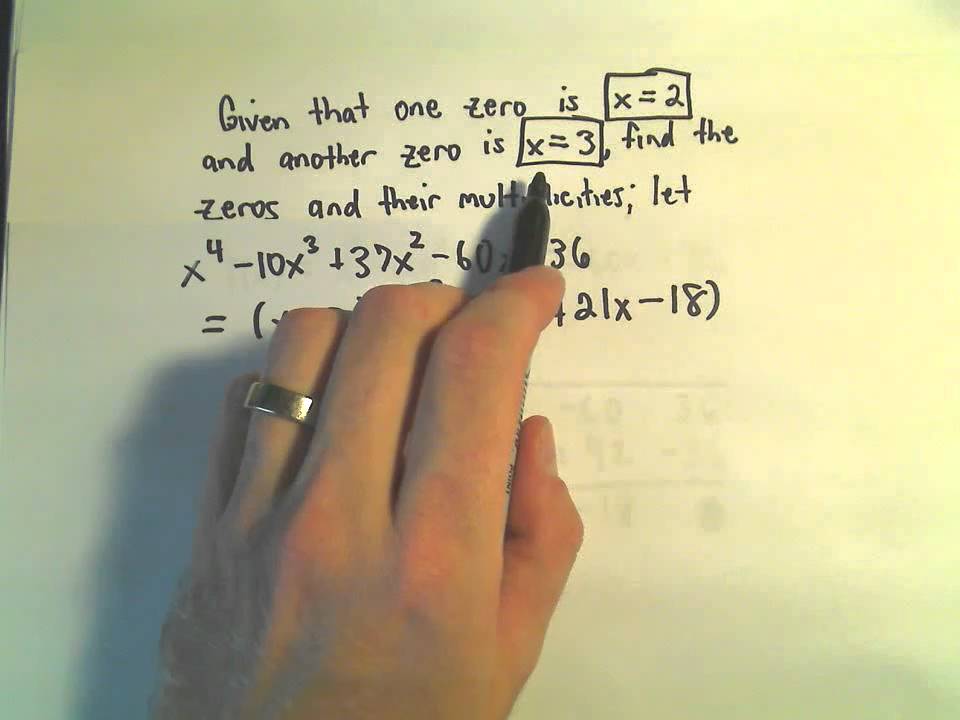 Given that one zero is x = 2
and another zero is x = 3, find the
zeros and their multiplicities; let
x⁴ - 10x³ + 37x² - 60 36
= ( + 21x - 18)
-60 36